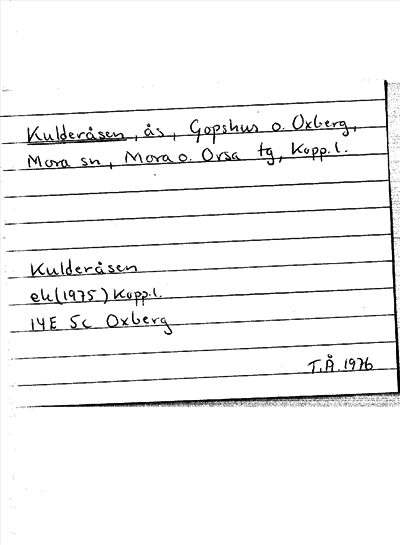 Kulderåsen, ås, Gopshus o. Oxberg,
Mora sn, Mora o. Orsa tg, Kopp.l.
Kulderåsen
ek (1975) Kopp.l.
14E 5c Oxberg
T.Å. 1976